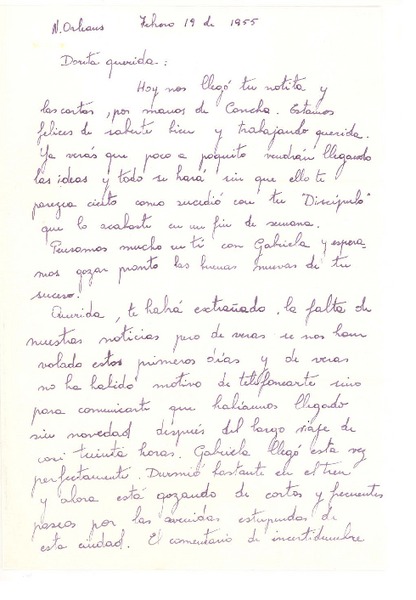 N. Orleans Febrero 19 de 1955
Dorita querida:
Hoy nos llegó tu notita y
las cartas, por manos de Concha. Estamos
felices de saberte bien y trabajando querida.
Ya verás que poco a poquito vendrán llegando
las ideas y todo se hará sin que ello te
parezca cierto como sucedió con tu "Discípulo"
que lo acabaste en un fin de semana.
Pensamos mucho en tí con Gabriela y espera-
mos gozar pronto las buenas nuevas de tu
suceso.
Querida, te habrá extrañado la falta de
nuestras noticias pero de veras se nos han
volado estos primeros días y de veras
no ha habido motivo de telefonearte sino
para comunicarte que habíamos llegado
sin novedad después del largo viaje de
casi treinta horas. Gabriela llegó esta vez
perfectamente. Durmió bastante en el tren
y ahora está gozando de cortos y frecuentes
paseos por las avenidas estupendas de
esta ciudad. El comentario de incertidumbre